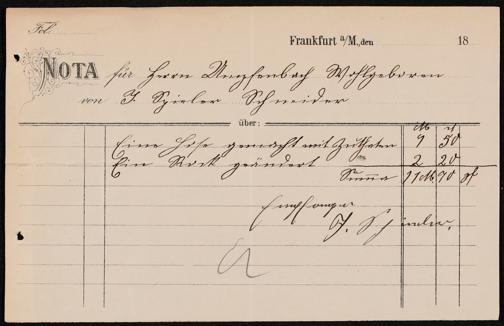 Fol.
Frankfurt a/M., den 18
NOTA für Herrn Umpfenbach Wohlgeboren
von J. Spieler Schneider
über:
M ₰
Eine Hose gemacht mit Zuthaten 9 50
Ein Rock geändert 2 20
Summa 11 M 70 ₰
Empfangen
J. Spieler.